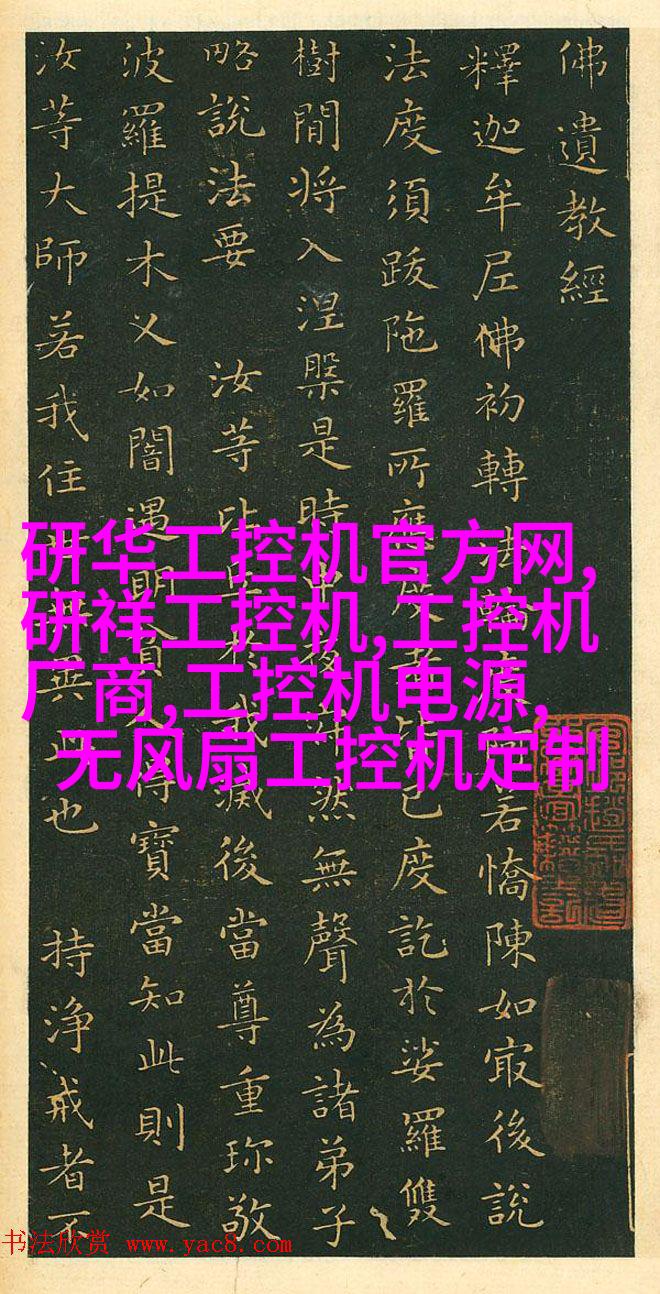 佛遺教經
釋迦牟尼佛初轉法輪度阿若憍陳如寂後說
法度須跋陁羅所應度者皆已度訖於娑羅雙
樹間將入涅槃是時中夜寂然無聲為諸弟子
略說法要 汝等比丘於我滅後當尊重珎敬
波羅提木乂如闇遇明貧人得寶當知此則是
汝等大師若我住世無異此也 持淨戒者不
研华工控机官方网,
研祥工控机,工控机
厂商,工控机电源,
无风扇工控机定制
书法欣赏 www.yac8.com